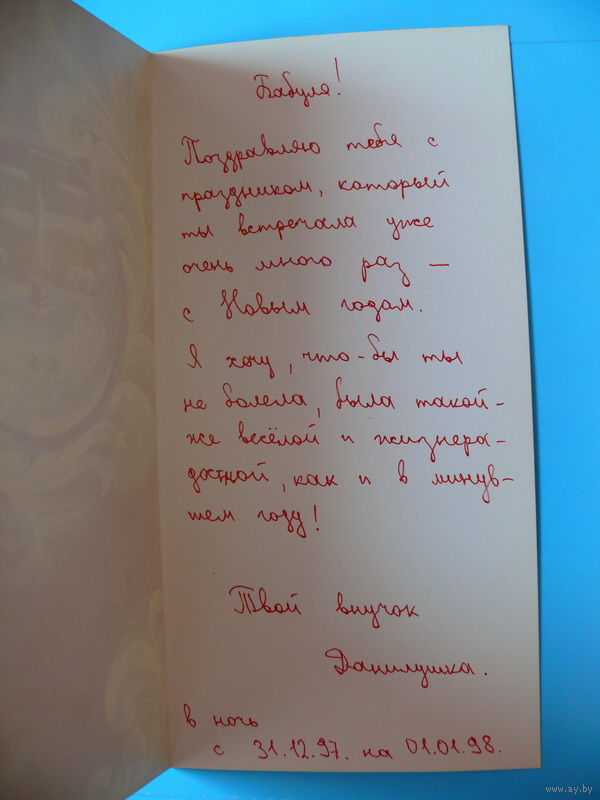 Бабуля!
Поздравляю тебя с
праздником, который
ты встречала уже
очень много раз —
с Новым годам.
Я хочу, что-бы ты
не болела, была такой-
же весёлой и жизнера-
достной, как и в минув-
тем году!
Твой внучок
Данилушка.
в ночь
с 31.12.97. на 01.01.98.
www.ay.by